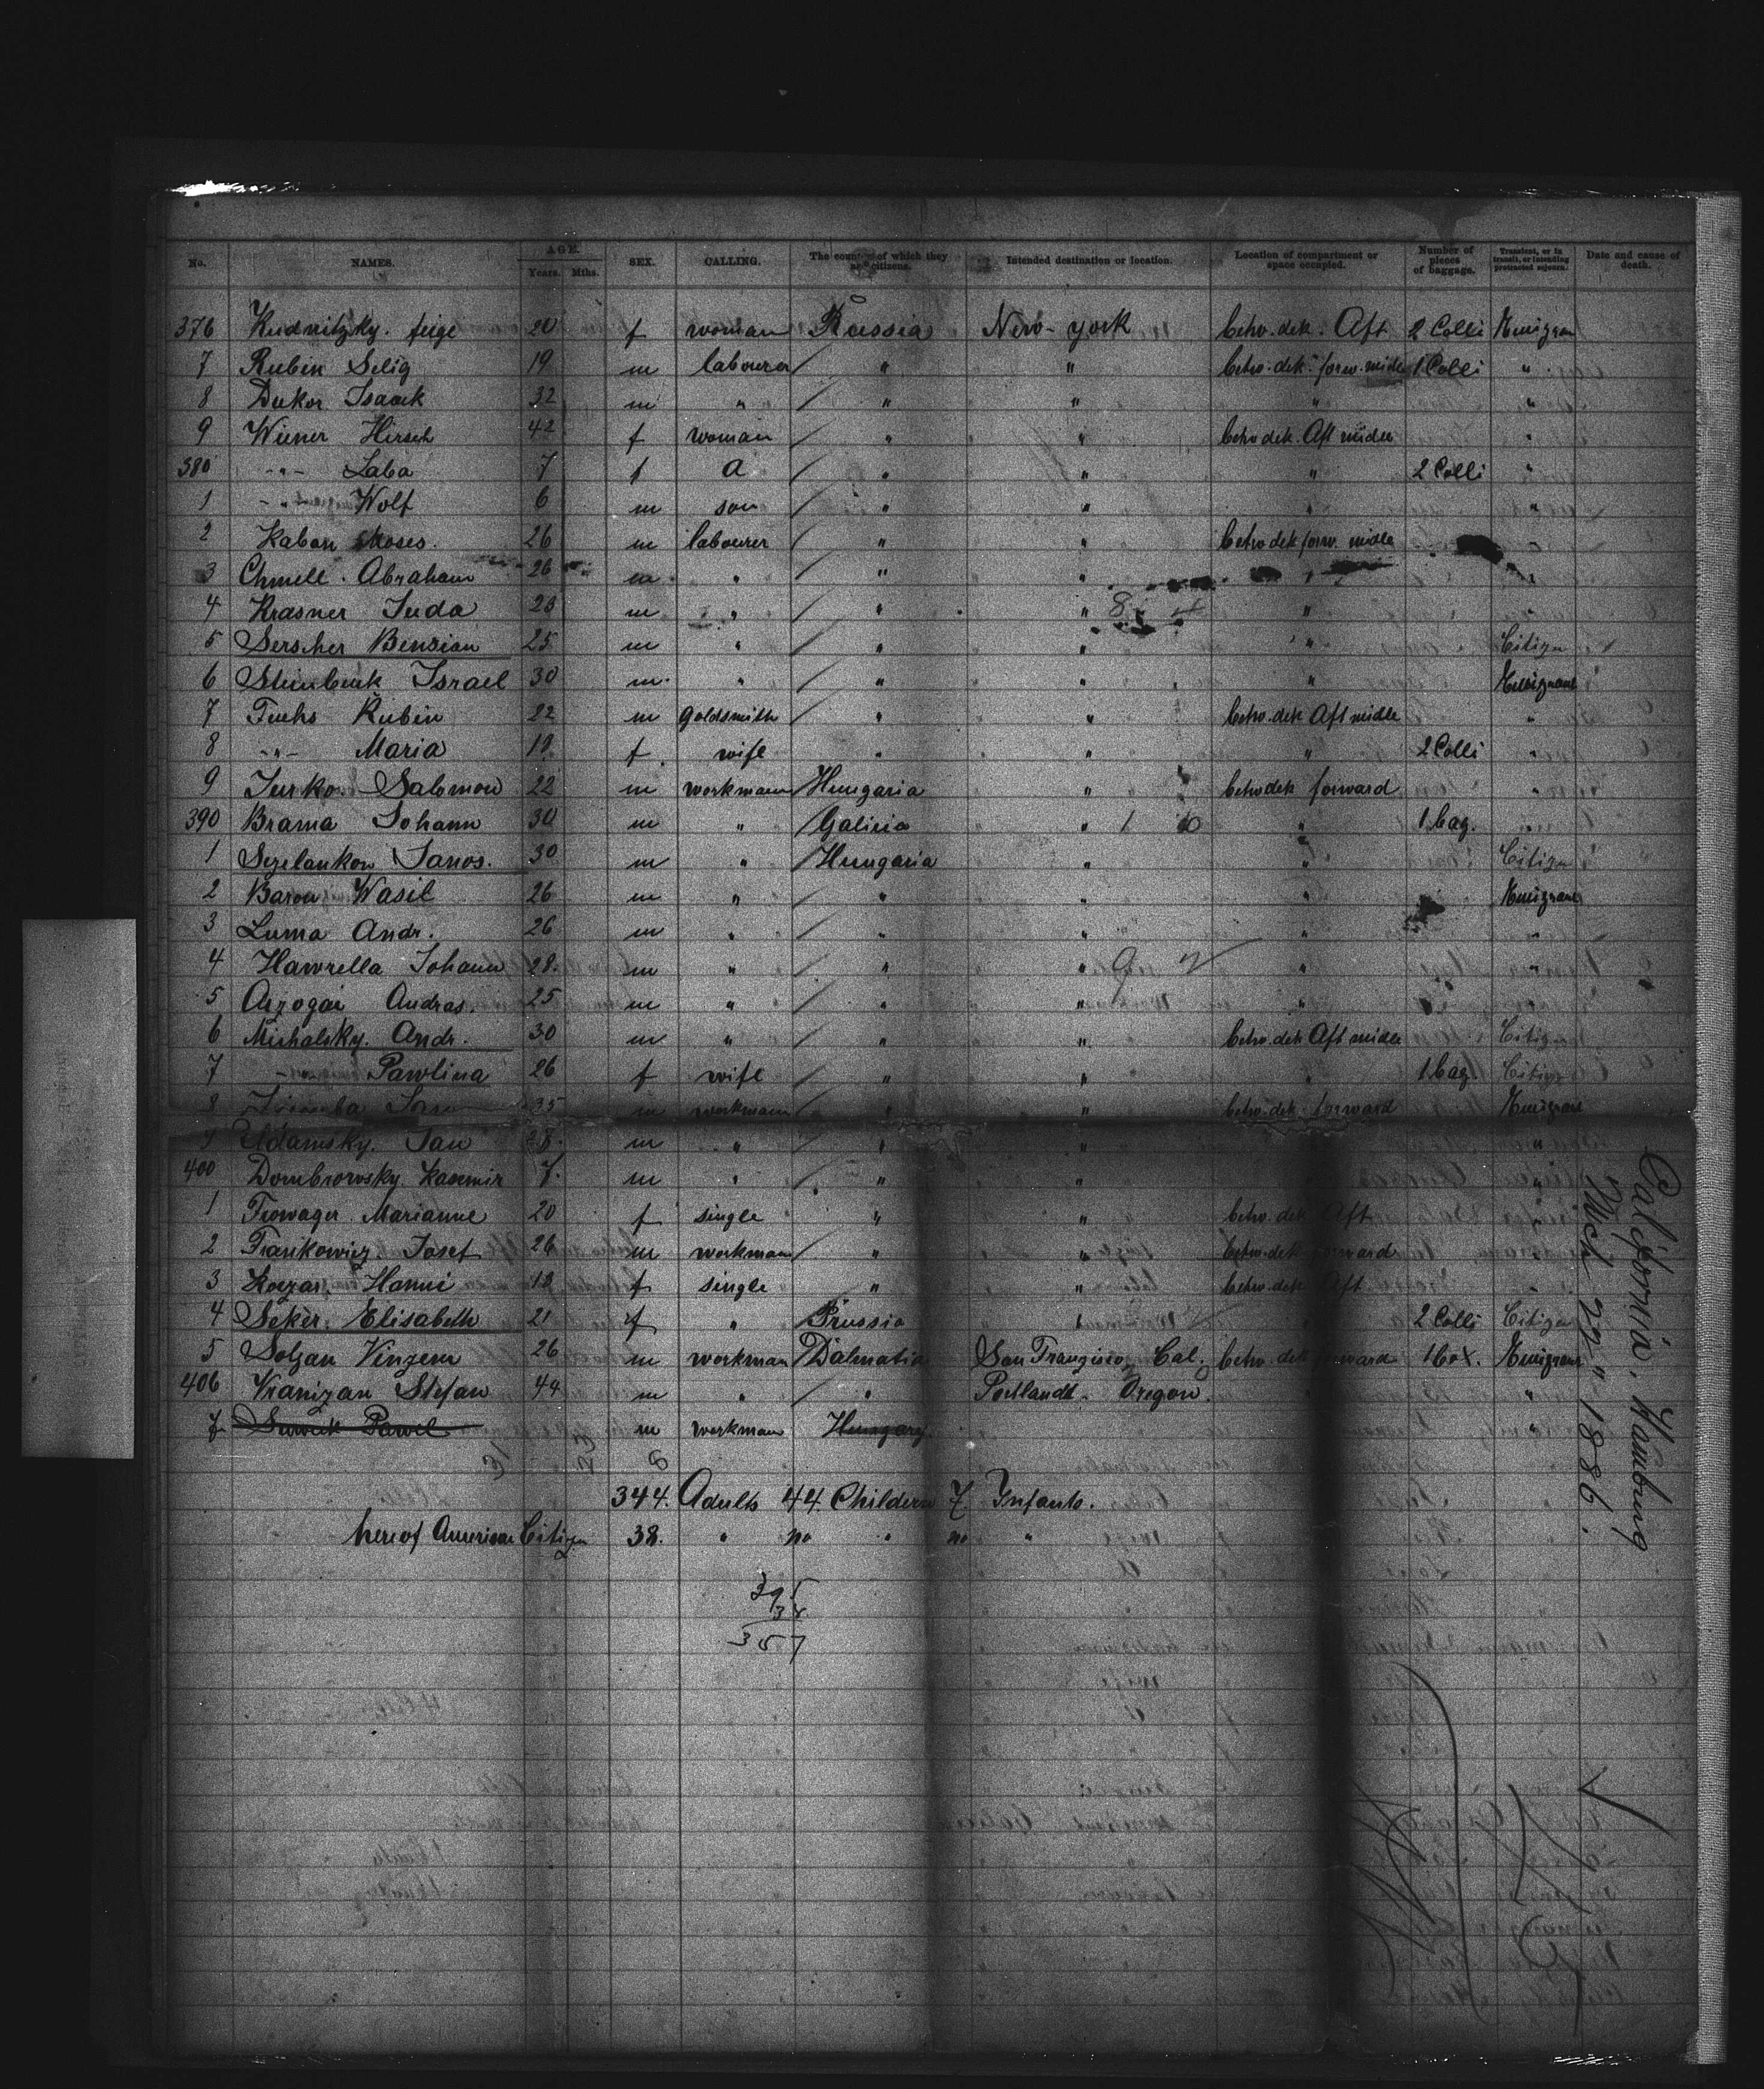 No. NAMES. AGE. Years. Mths. SEX. CALLING. The country of which they are citizens. Intended destination or location. Location of compartment or space occupied. Number of pieces of baggage. Transient, or in transit, or intending protracted sojourn. Date and cause of death.
376 Kudnitzky. feige 20 f woman Russia New-york betw. dek. Aft 2 Colli Emigran
7 Rubin Selig 19 m labourer " " betw. dek. forw. midle 1 Colli "
8 Dukor Isaack 32 m " " " " "
9 Wiener Hirsch 42 f woman " " betw dek. Aft midle "
380 -"- Laba 7 f a " " " 2 Colli "
1 -"- Wolf 6 m son " " " "
2 Kaban Moses. 26 m labourer " " betw dek forw. midle
3 Chmell. Abraham 26 m " " " " "
4 Krasner Juda 23 m " " " 8 4 " "
5 Serscher Bension 25 m " " " " Citizn
6 Steinbuck Israel 30 m " " " " Emigrant
7 Fuchs Rubin 22 m goldsmith " " betw. dek Aft midle "
8 -"- Maria 19 f wife " " " 2 Colli "
9 Jurko Salomon 22 m workmann Hungaria " betwdek forward "
390 Brama Johann 30 m " Galicia " 1 10 " 1 bag. "
1 Szelankow Janos. 30 m " Hungaria " " Citizn
2 Baron Wasil 26 m " " " " Emigrant
3 Luma Andr. 26 m " " " " "
4 Hawrella Johann 28. m " " " 9 " "
5 Aszogai Andras. 25 m " " " "
6 Michalsky. Andr. 30 m " " " betw. dek Aft midle Citizn
7 -"- Pawlina 26 f wife " " " 1 bag. Citizn
8 35 m workmann " " betw. dek. forward Emigrant
9 Adamsky. Jan m " " " "
400 Dombrowsky. Kasemir 7. m " " " "
1 Frowager. Marianne 20 f single " " betw. dek Aft "
2 Frankowicz. Josef 26 m workmann " " betw. dek forward
3 Koczar. Hanni 18 f single " " betw. dek Aft "
4 Seker. Elisabeth 21 f " Prussia " 2 Colli Citizn
5 Solzan Vinzern 26 m workman Dalmatia San Franzisco, Cal. betw. dek forward 1 box. Emigrant
406 Vranizan Stefan 44 m " " Portlandt. Oregon. "
7 Pawel m workman Hungary "
31 23 6
344. Adults 44 Childern 7. Infants.
hereof American Citizn 38. " no " no "
395
38
357
California, Hamburg
Mch 22" 1886.